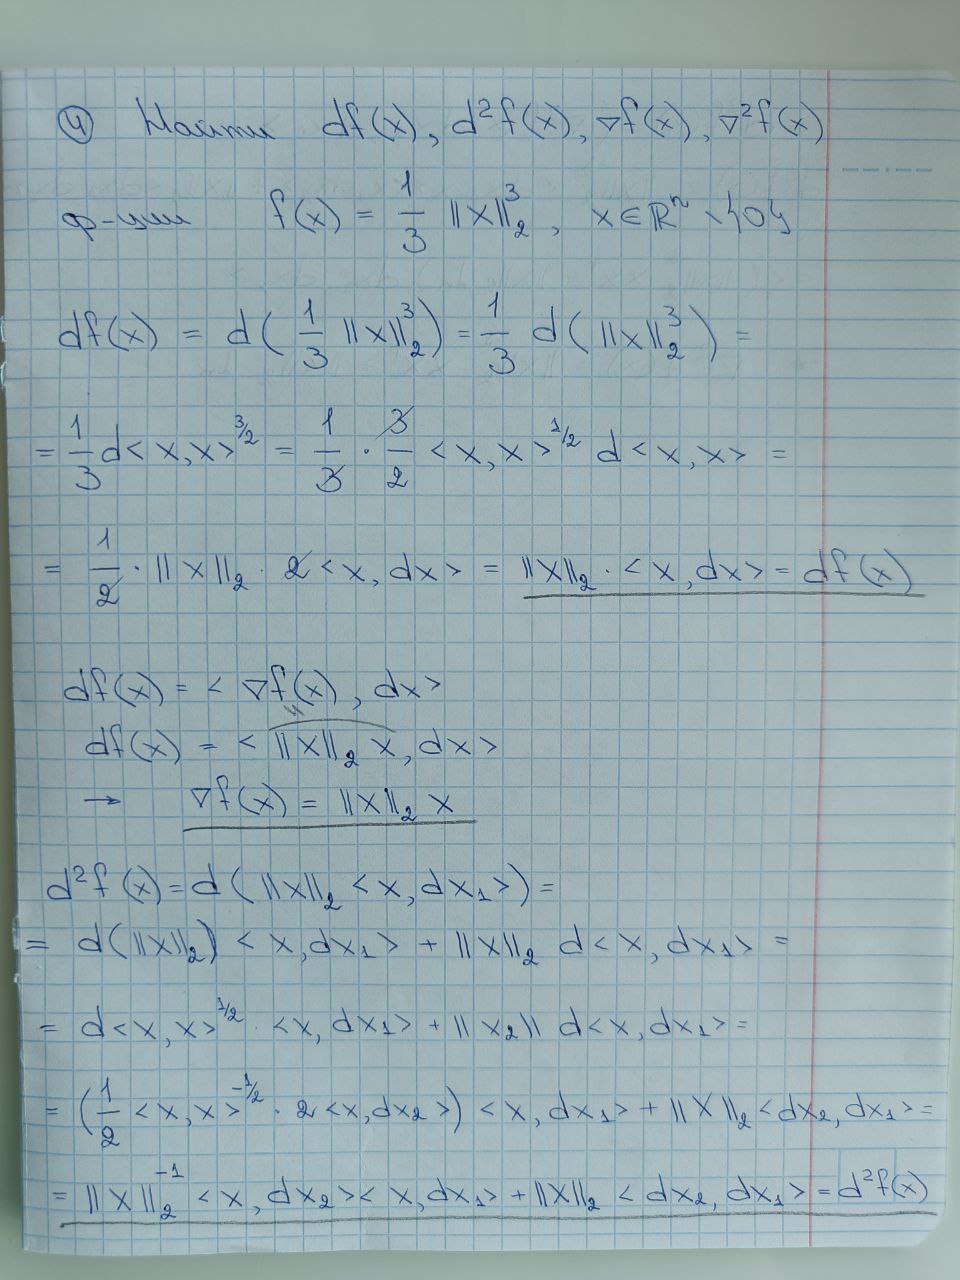 ④ Найти df(x), d²f(x), ∇f(x), ∇²f(x)
ф-ции f(x) = 1/3 ||x||₂³, x ∈ ℝⁿ \ {0}
df(x) = d(1/3 ||x||₂³) = 1/3 d(||x||₂³) =
= 1/3 d<x,x>^{3/2} = 1/3 · 3/2 <x,x>^{1/2} d<x,x> =
= 1/2 · ||x||₂ · 2<x, dx> = ||x||₂ · <x, dx> = df(x)
df(x) = <∇f(x), dx>
df(x) = <||x||₂ x, dx>
→ ∇f(x) = ||x||₂ x
d²f(x) = d(||x||₂ <x, dx₁>) =
= d(||x||₂) <x, dx₁> + ||x||₂ d<x, dx₁> =
= d<x,x>^{1/2} · <x, dx₁> + ||x₂|| d<x, dx₁> =
= (1/2 <x,x>^{-1/2} · 2<x, dx₂>) <x, dx₁> + ||x||₂ <dx₂, dx₁> =
= ||x||₂⁻¹ <x, dx₂><x, dx₁> + ||x||₂ <dx₂, dx₁> = d²f(x)